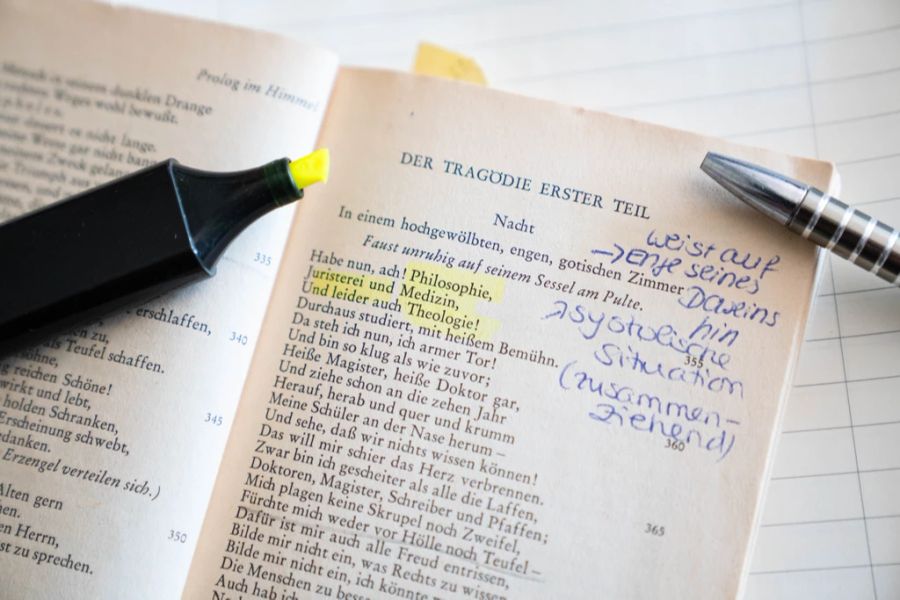 Prolog im Himmel
dunklen Drange
Weges wohl bewußt.
es nicht lange.
Wette gar nicht bang
335
erschlaffen,
340
zu,
als Teufel schaffen.
reichen Schöne!
wirkt und lebt,
holden Schranken,
345
Erscheinung schwebt,
Erzengel verteilen sich.)
Alten gern
350
Herrn,
zu sprechen.
DER TRAGÖDIE ERSTER TEIL
Nacht
In einem hochgewölbten, engen, gotischen Zimmer
Faust unruhig auf seinem Sessel am Pulte.
Habe nun, ach! Philosophie,
Juristerei und Medizin,
Und leider auch Theologie!
Durchaus studiert, mit heißem Bemühn.
355
Da steh ich nun, ich armer Tor!
Und bin so klug als wie zuvor;
Heiße Magister, heiße Doktor gar,
Und ziehe schon an die zehen Jahr
360
Herauf, herab und quer und krumm
Meine Schüler an der Nase herum –
Und sehe, daß wir nichts wissen können!
Das will mir schier das Herz verbrennen.
365
Zwar bin ich gescheiter als alle die Laffen,
Doktoren, Magister, Schreiber und Pfaffen;
Mich plagen keine Skrupel noch Zweifel,
Fürchte mich weder vor Hölle noch Teufel –
Dafür ist mir auch alle Freud entrissen,
Bilde mir nicht ein, was Rechts zu wissen
Bilde mir nicht ein, ich könnte
Die Menschen zu
Auch hab
weist auf
→ Enge seines
Daseins
hin
→ systolische
Situation
(zusammen-
ziehend)